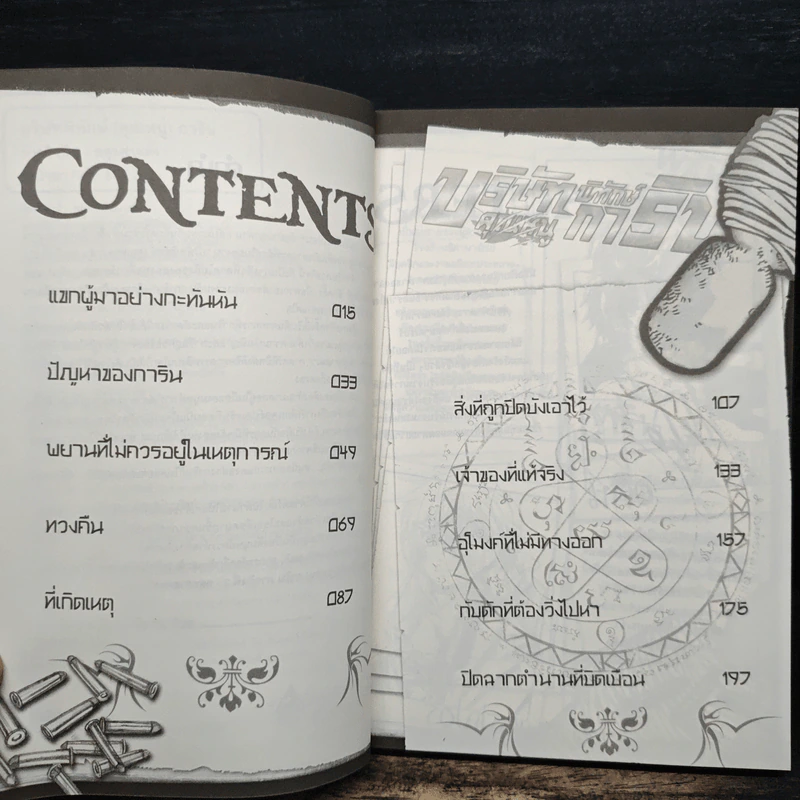 CONTENTS
แขกผู้มาอย่างกะทันหัน 015
ปัญหาของการิน 033
พยานที่ไม่ควรอยู่ในเหตุการณ์ 049
ทวงคืน 069
ที่เกิดเหตุ 087
บริษัทพิทักษ์
การิน
สิ่งที่ถูกปิดบังเอาไว้ 107
เจ้าของที่แท้จริง 133
อุโมงค์ที่ไม่มีทางออก 157
กับดักที่ต้องวิ่งไปหา 175
ปิดฉากตำนานที่บิดเบือน 197